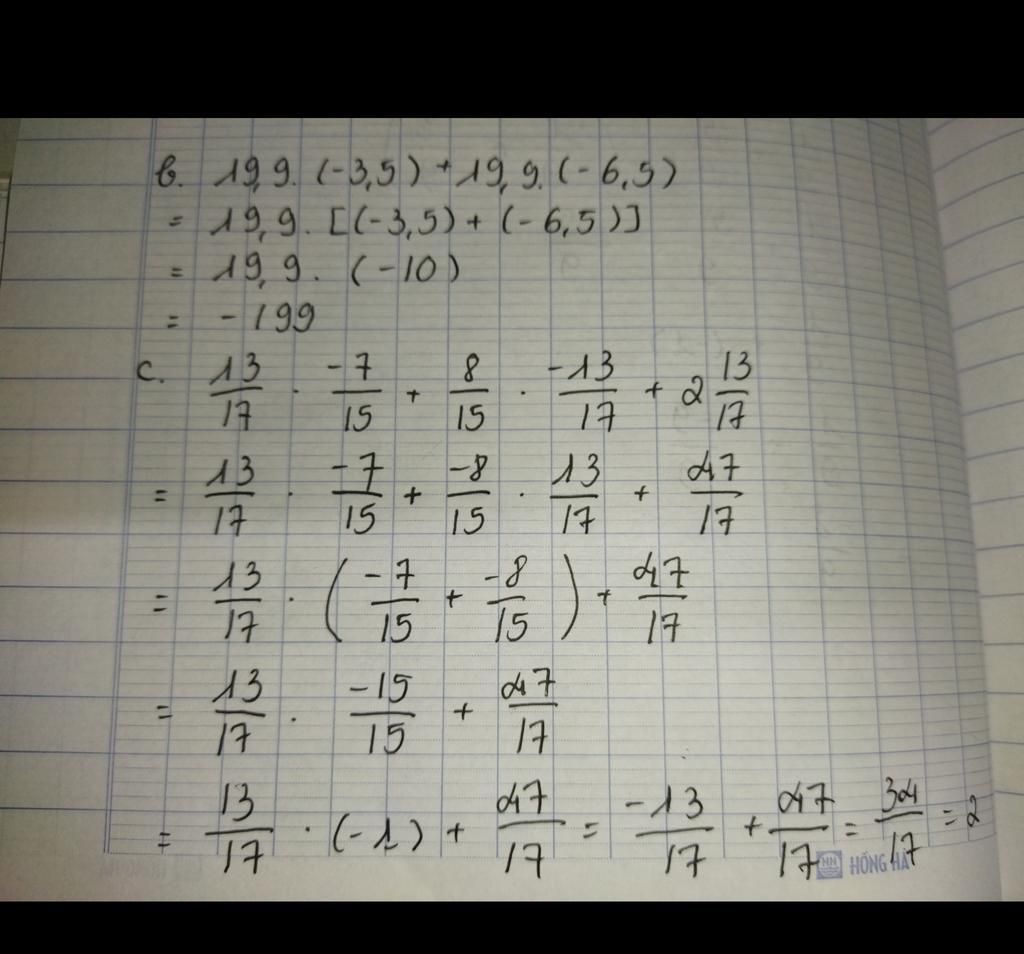 b. 19,9. (-3,5) + 19,9. (-6,5)
= 19,9. [(-3,5) + (-6,5)]
= 19,9. (-10)
= -199
c. 13/17 . -7/15 + 8/15 . -13/17 + 2 13/17
= 13/17 . -7/15 + -8/15 . 13/17 + 47/17
= 13/17 . (-7/15 + -8/15) + 47/17
= 13/17 . -15/15 + 47/17
= 13/17 . (-1) + 47/17 = -13/17 + 47/17 = 34/17 = 2
HỒNG HÀ